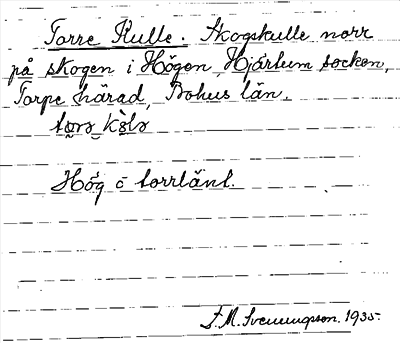 Torre Kulle. Skogskulle norr
på skogen i Högen, Hjärtum socken,
Torpe härad, Bohus län.
Hög o torrlänt.
F. M. Svenungson. 1935